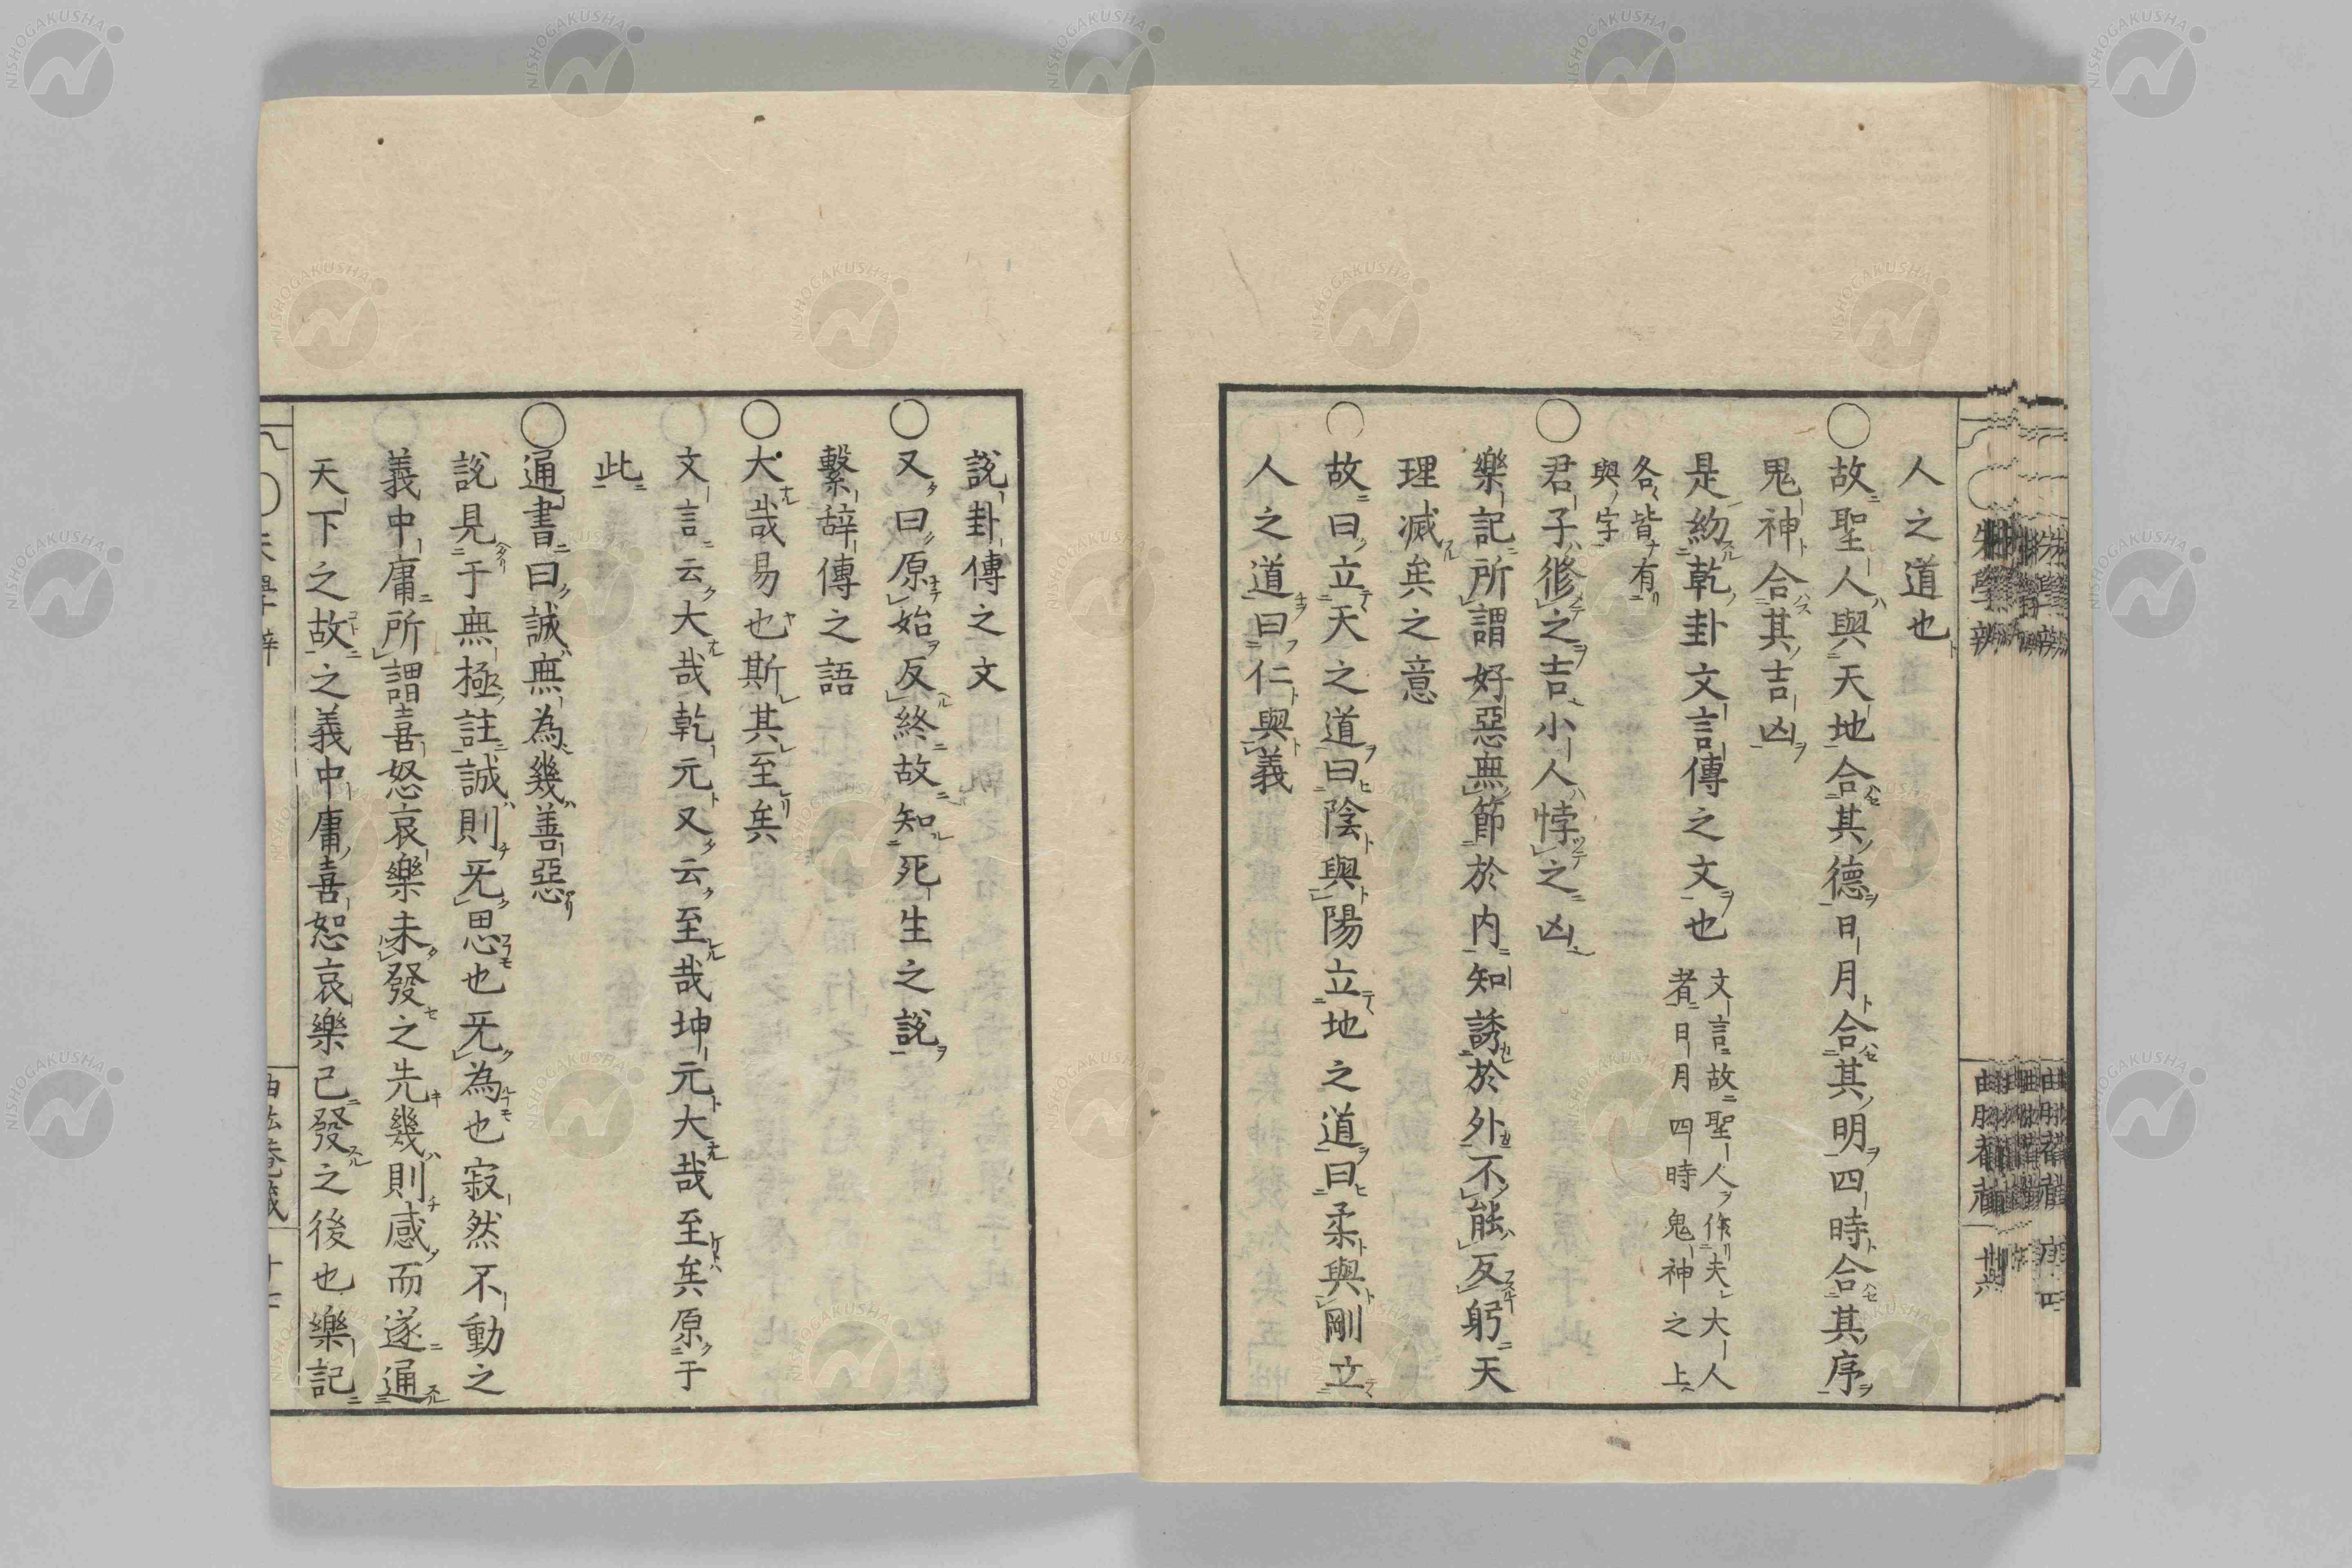 人之道也
○故聖人與天地合其德日月合其明四時合其序
鬼神合其吉凶
是約乾卦文言傳之文也
文言故聖人作夫大人
者日月四時鬼神之上
各皆有
與字
○君子修之吉小人悖之凶
樂記所謂好惡無節於內知誘於外不能反躬天
理滅矣之意
○故曰立天之道曰陰與陽立地之道曰柔與剛立
人之道曰仁與義
說卦傳之文
○又曰原始反終故知死生之說
繫辞傳之語
○大哉易也斯其至矣
文言云大哉乾元又云至哉坤元大哉至矣原于
此
○通書曰誠無為幾善惡
說見于無極註誠則旡思也旡為也寂然不動之
義中庸所謂喜怒哀樂未發之先幾則感而遂通
天下之故之義中庸喜怒哀樂已發之後也樂記
NISHOGAKUSHA